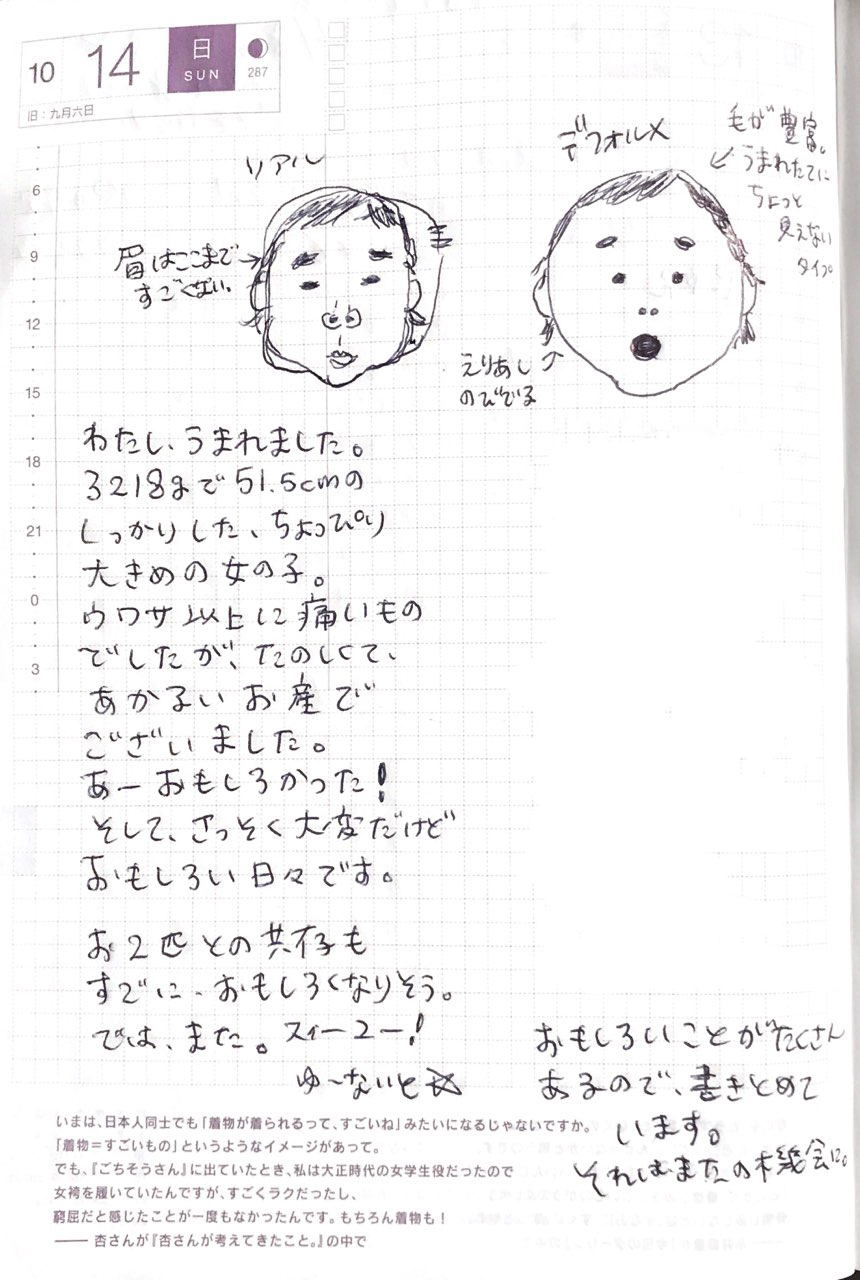 10 14 日 SUN 287
旧：九月六日
リアル
デフォルメ
毛が豊富。
うまれたてに
ちょっと
見えない
タイプ。
眉はここまで
すごくない。
えりあし
のびてる
6
9
12
15
18
21
0
3
わたし、うまれました。
3218gで51.5cmの
しっかりした、ちょっぴり
大きめの女の子。
ウワサ以上に痛いもの
でしたが、たのしくて、
あかるいお産で
ございました。
あーおもしろかった！
そして、さっそく大変だけど
おもしろい日々です。
お2匹との共存も
すでに、おもしろくなりそう。
では、また。スィーユー！
ゆ〜ないと☆
おもしろいことがたくさん
あるので、書きとめて
います。
それはまたの機会に。
いまは、日本人同士でも「着物が着られるって、すごいね」みたいになるじゃないですか。
「着物＝すごいもの」というようなイメージがあって。
でも、『ごちそうさん』に出ていたとき、私は大正時代の女学生役だったので
女袴を履いていたんですが、すごくラクだったし、
窮屈だと感じたことが一度もなかったんです。もちろん着物も！
―― 杏さんが『杏さんが考えてきたこと。』の中で